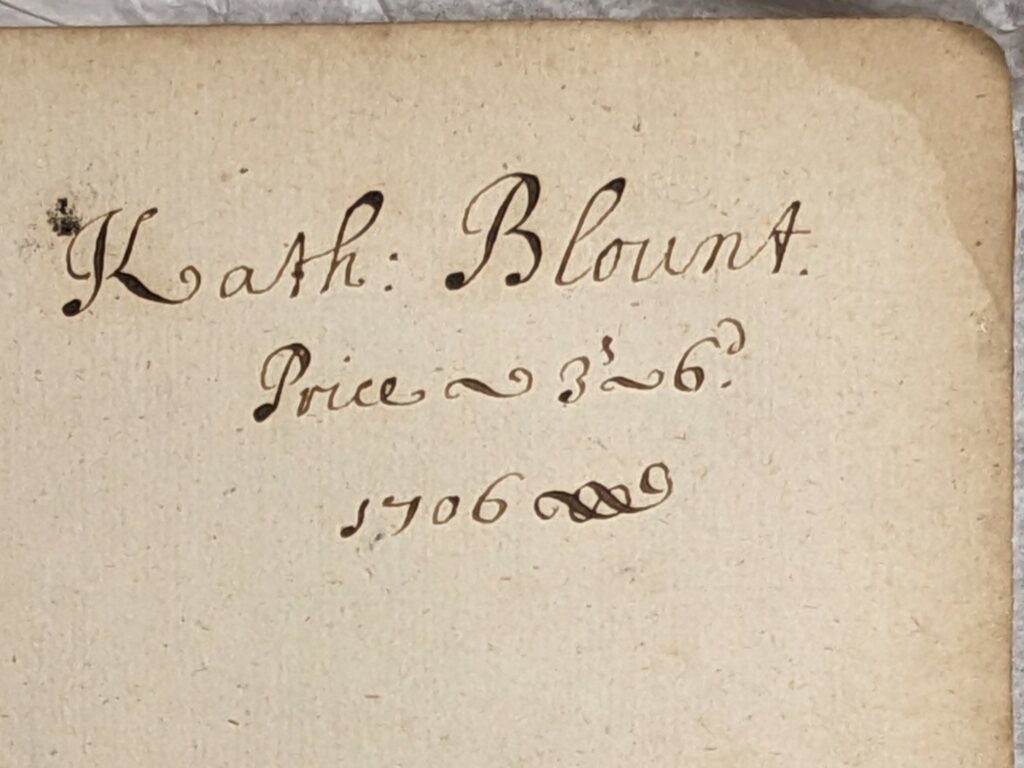 Kath: Blount.
Price ~ 3ˢ ~ 6ᵈ.
1706